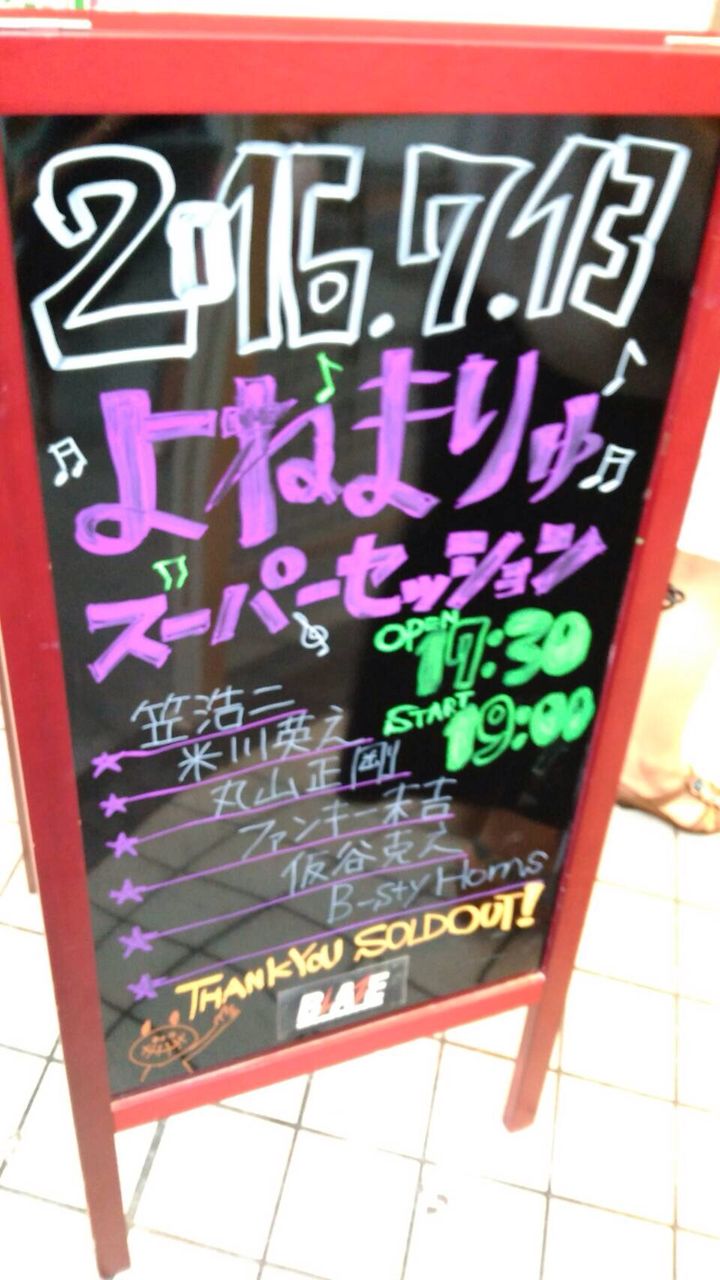 2016.7.13
よねまりゅ
スーパーセッション
OPEN 17:30
START 19:00
笠浩二
米川英之
丸山正剛
ファンキー末吉
仮谷克之
B-sty Horns
THANK YOU SOLD OUT!
BLAZE